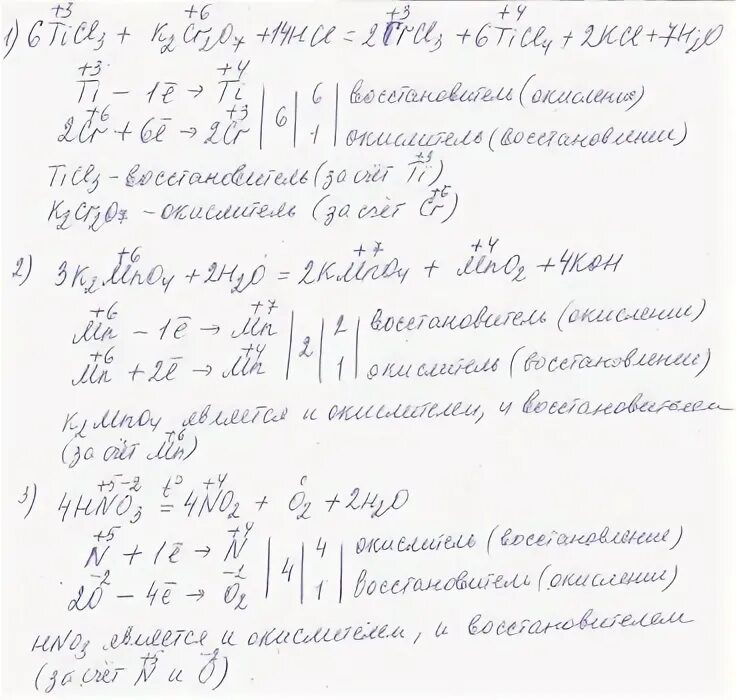 +3 +6 +3 +4
1) 6TiCl3 + K2Cr2O7 + 14HCl = 2CrCl3 + 6TiCl4 + 2KCl + 7H2O
+3 +4
Ti – 1ē → Ti | 6 | 6 | восстановитель (окисление)
+6 +3
2Cr + 6ē → 2Cr | 1 | окислитель (восстановлении)
+3
TiCl3 – восстановитель (за счёт Ti)
+6
K2Cr2O7 – окислитель (за счёт Cr)
+6 +7 +4
2) 3K2MnO4 + 2H2O = 2KMnO4 + MnO2 + 4KOH
+6 +7
Mn – 1ē → Mn | 2 | 2 | восстановитель (окислении)
+6 +4
Mn + 2ē → Mn | 1 | окислитель (восстановлении)
K2MnO4 является и окислителем, и восстановителем
+6
(за счёт Mn)
+5 -2 t° +4 0
3) 4HNO3 = 4NO2 + O2 + 2H2O
+5 +4
N + 1ē → N | 4 | 4 | окислитель (восстановление)
-2
2O – 4ē → O2 | 1 | восстановитель (окислении)
HNO3 является и окислителем, и восстановителем
+5 -2
(за счёт N и O)